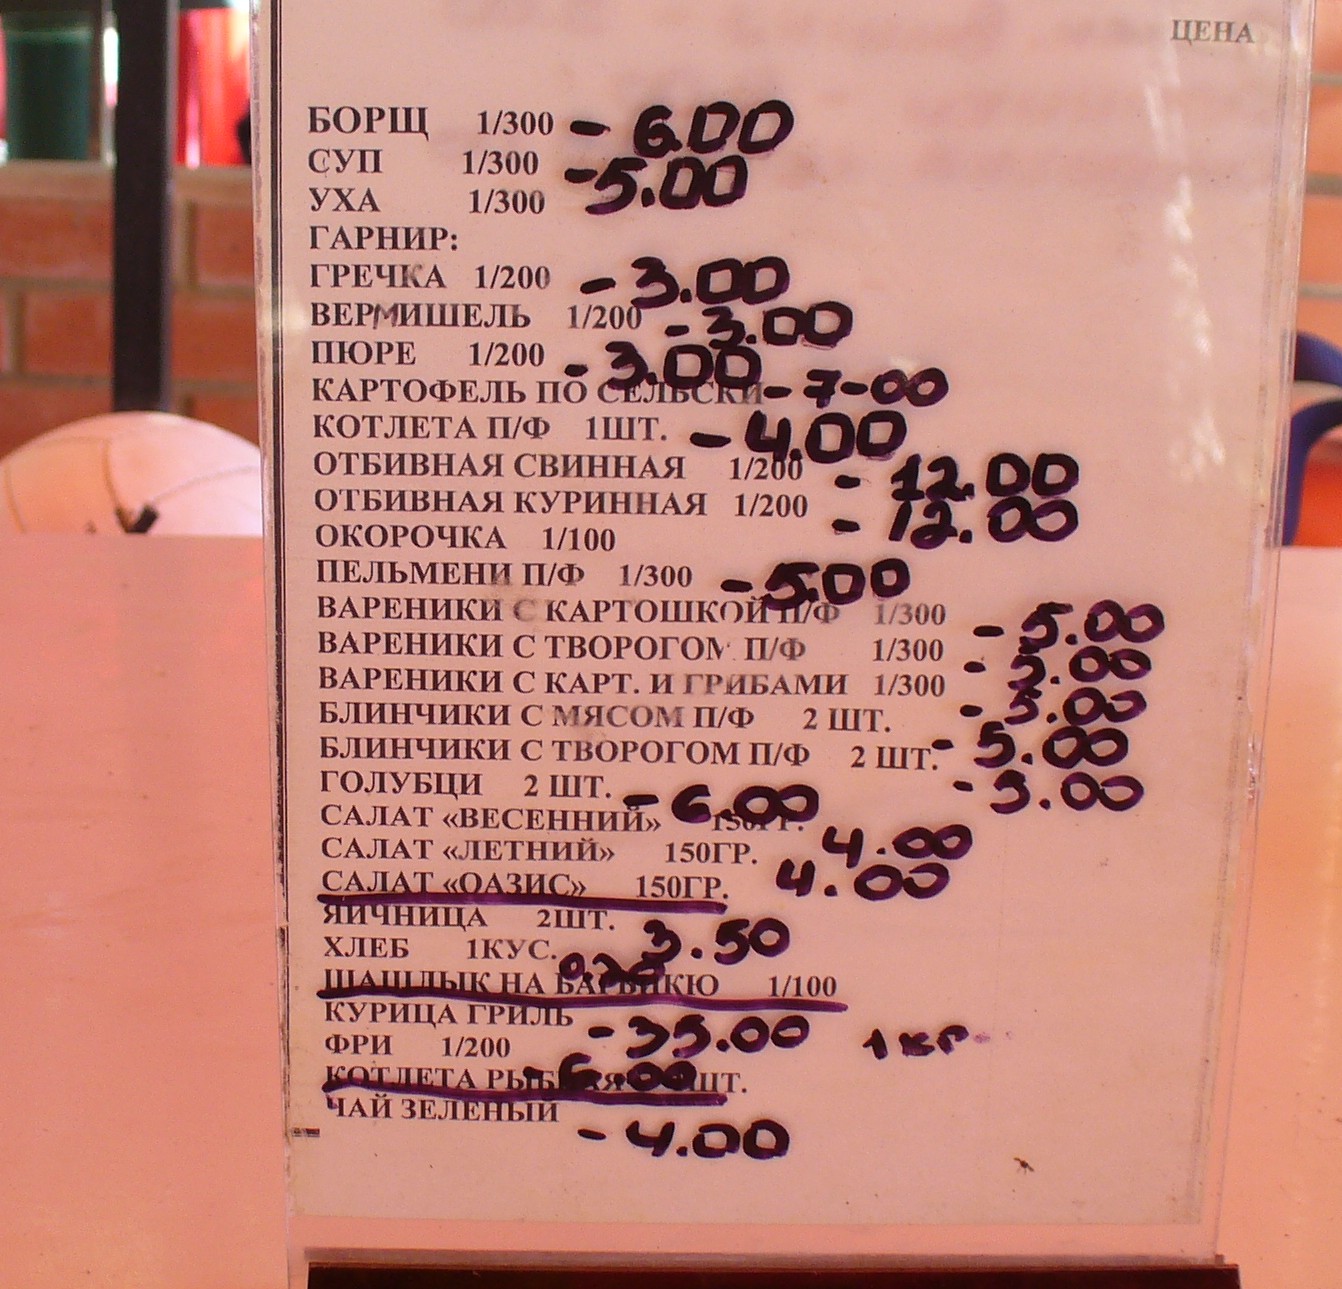 ЦЕНА
БОРЩ 1/300 - 6.00
СУП 1/300 - 5.00
УХА 1/300
ГАРНИР:
ГРЕЧКА 1/200 - 3.00
ВЕРМИШЕЛЬ 1/200 - 3.00
ПЮРЕ 1/200 - 3.00
КАРТОФЕЛЬ ПО СЕЛЬСКИ - 7-00
КОТЛЕТА П/Ф 1ШТ. - 4.00
ОТБИВНАЯ СВИННАЯ 1/200 - 12.00
ОТБИВНАЯ КУРИННАЯ 1/200 - 12.00
ОКОРОЧКА 1/100
ПЕЛЬМЕНИ П/Ф 1/300 - 5.00
ВАРЕНИКИ С КАРТОШКОЙ П/Ф 1/300 - 5.00
ВАРЕНИКИ С ТВОРОГОМ П/Ф 1/300 - 5.00
ВАРЕНИКИ С КАРТ. И ГРИБАМИ 1/300 - 5.00
БЛИНЧИКИ С МЯСОМ П/Ф 2 ШТ. - 5.00
БЛИНЧИКИ С ТВОРОГОМ П/Ф 2 ШТ. - 5.00
ГОЛУБЦИ 2 ШТ. - 6.00
САЛАТ «ВЕСЕННИЙ» 150ГР. 4.00
САЛАТ «ЛЕТНИЙ» 150ГР. 4.00
САЛАТ «ОАЗИС» 150ГР.
ЯИЧНИЦА 2ШТ. 3.50
ХЛЕБ 1КУС. 0.20
ШАШЛЫК НА БАРБИКЮ 1/100
КУРИЦА ГРИЛЬ - 35.00 1 кг
ФРИ 1/200 - 6.00
КОТЛЕТА РЫБНАЯ ШТ.
ЧАЙ ЗЕЛЕНЫЙ - 4.00